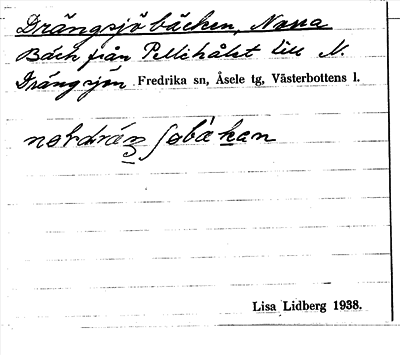 Drängsjöbäcken, Norra
Bäck från Pellehålet till N.
Drängsjön. Fredrika sn, Åsele tg, Västerbottens l.
Lisa Lidberg 1938.